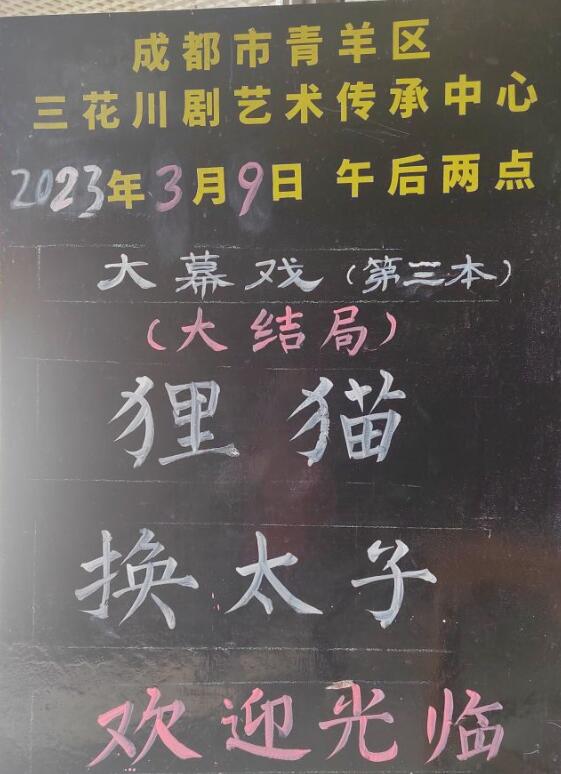 成都市青羊区
三花川剧艺术传承中心
2023年3月9日 午后两点
大幕戏（第三本）
（大结局）
狸猫
换太子
欢迎光临